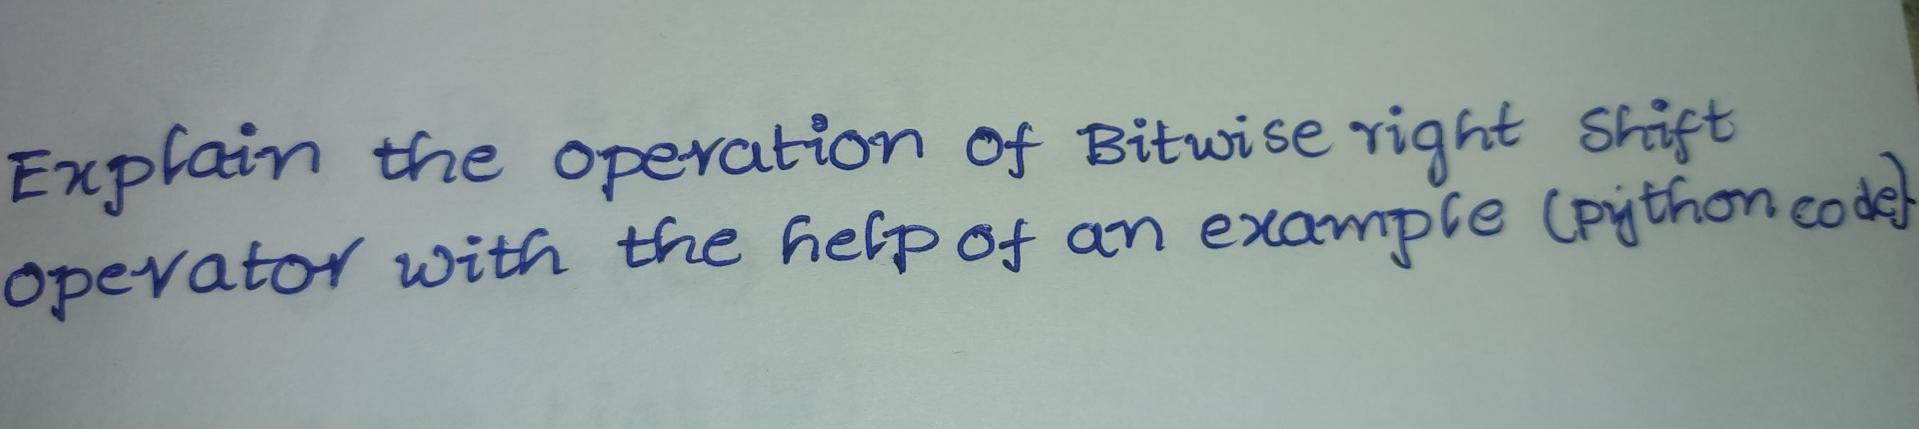 Explain the operation of Bitwise right Shift
operator with the help of an example (python code)